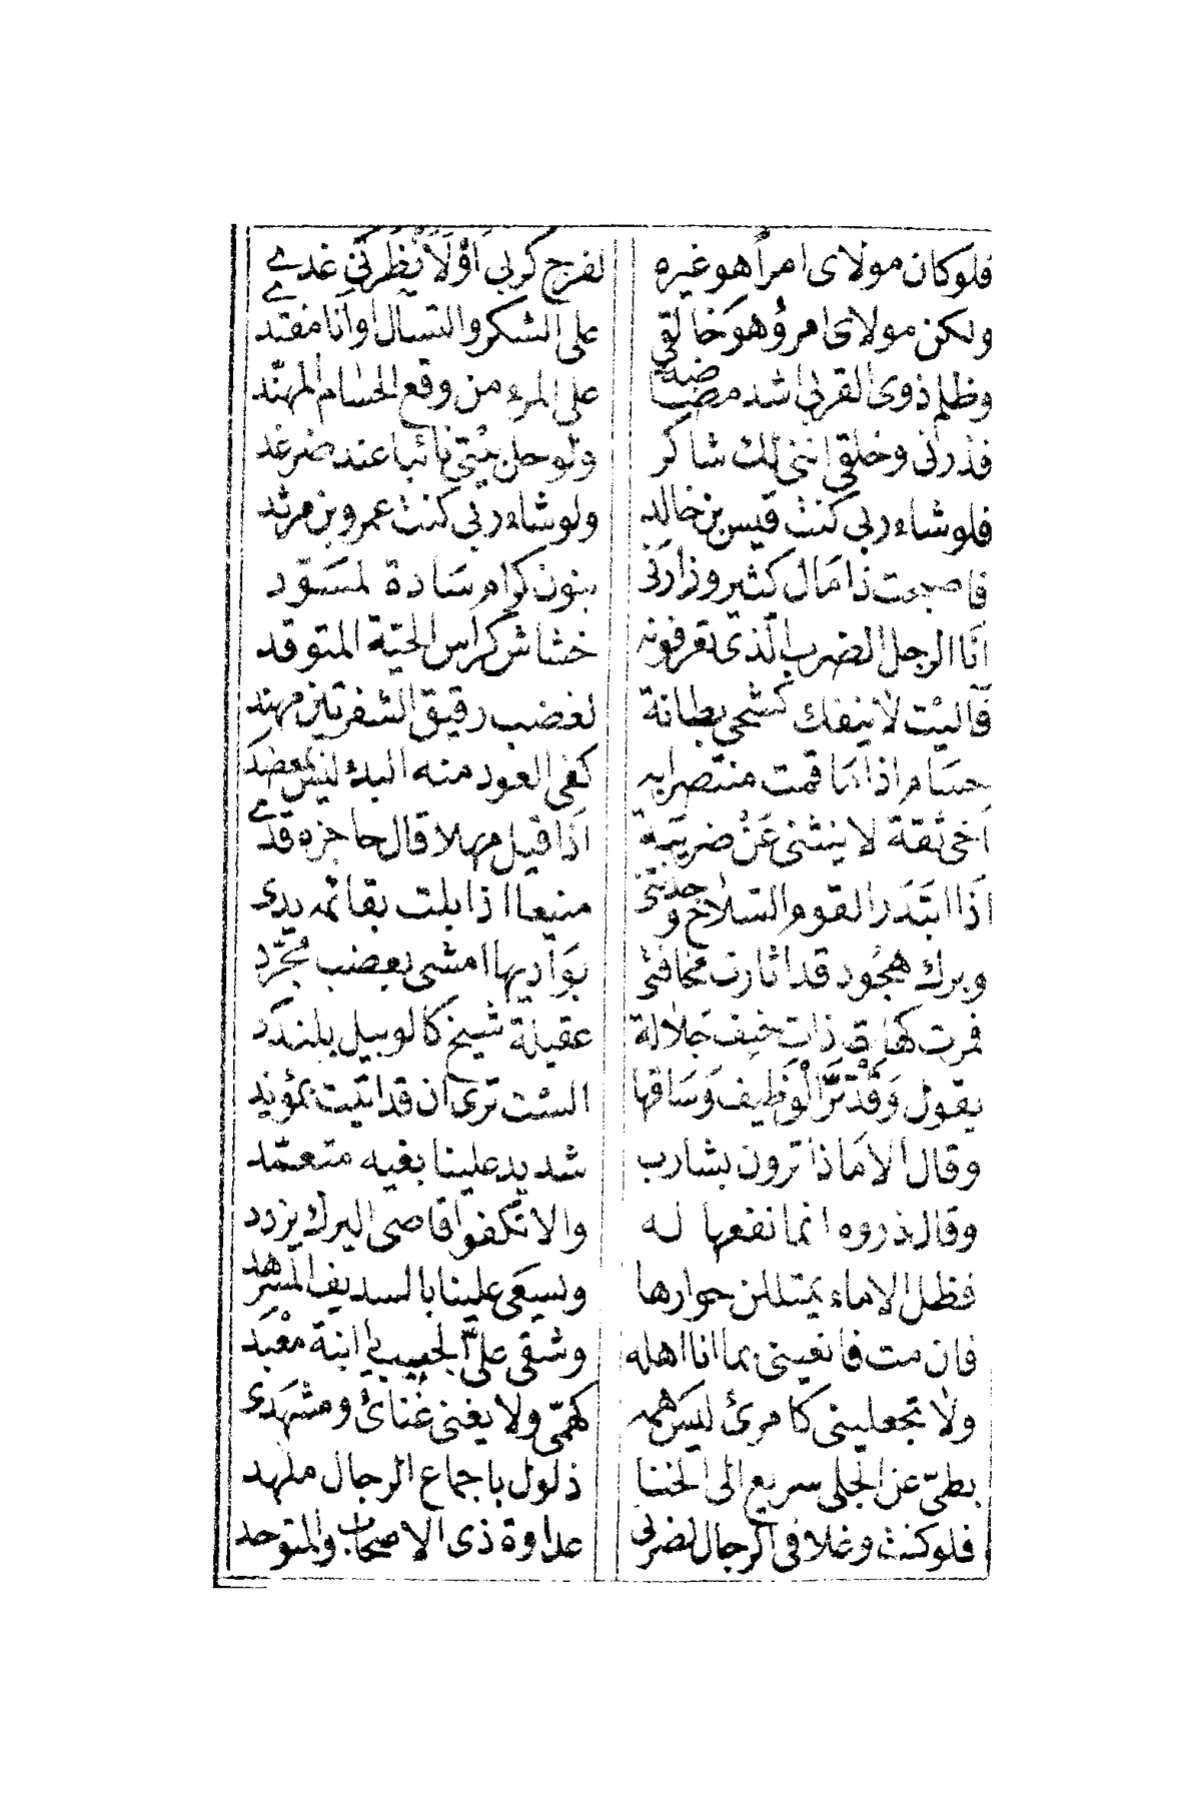 فلوكان مولاى امرأ هو غيره لفرج كربى اَوْلَاَنْظَرَنِى غدى
ولكن مولاى امرؤ هوَ خالقى على الشكر والتسآل اوانا مفتد
وظلم ذوى القربى اشد مضاضة على المرء من وقع الحسام المهنّد
فذرنى وخلقى اننى لك شاكر ولو حل بيْتى نائبا عند ضرغد
فلو شاء ربى كنت قيس بن خالد ولو شاء ربى كنت عمرو بن مرثد
فاصبحت ذا مال كثير وزارنى بنون كرام سادة لمسَوّد
انا الرجل الضرب الّذى تعرفونه خشاش كراس الحيّة المتوقد
فآليْت لا ينفك كشحى بطانة لعضب رقيق الشفرتين مهند
حسام اذا ما قمت منتصرا به كفى العود منه البدء ليس بمعضد
اخى ثقة لا ينثنى عَنْ ضريبَةٍ اذا قيل مهلا قال حاجزه قدى
اذا ابتَدَرَ القوم السّلاح وجدتنى منيعا اذا بلت بقائمه يدى
وبرك هجُود قد اثارت مخافتى بوَاديها امشى بعضب مجرّد
فمرت كهاة ذات خيف جَلالة عقيلة شيخ كالوبيل يلندد
يقول وَقَدْ تَرَّ الْوَظيف وَسَاقها الست ترى ان قد اتيت بمؤيد
وقال الا مَاذا ترون بشارب شديد علينا بغيه متعمّد
وقال ذروه انما نفعها له والا تكفوا قاصى البرك يزدد
فظل الاماء يمتللن حوارها ويسعَى علينا بالسديف المسرهد
فان مت فانعينى بما انا اهله وشقى علىّ الجيب يا ابنة معْبَد
ولا تجعلينى كامرئ ليسَ همه كهمّى ولا يغنى غُنائى ومشهَدى
بطىّ عن الجلى سريع الى الخنا ذلول باجماع الرجال ملهد
فلو كنت وغلا فى الرجال لضرنى عداوة ذى الاصحاب والمتوحد